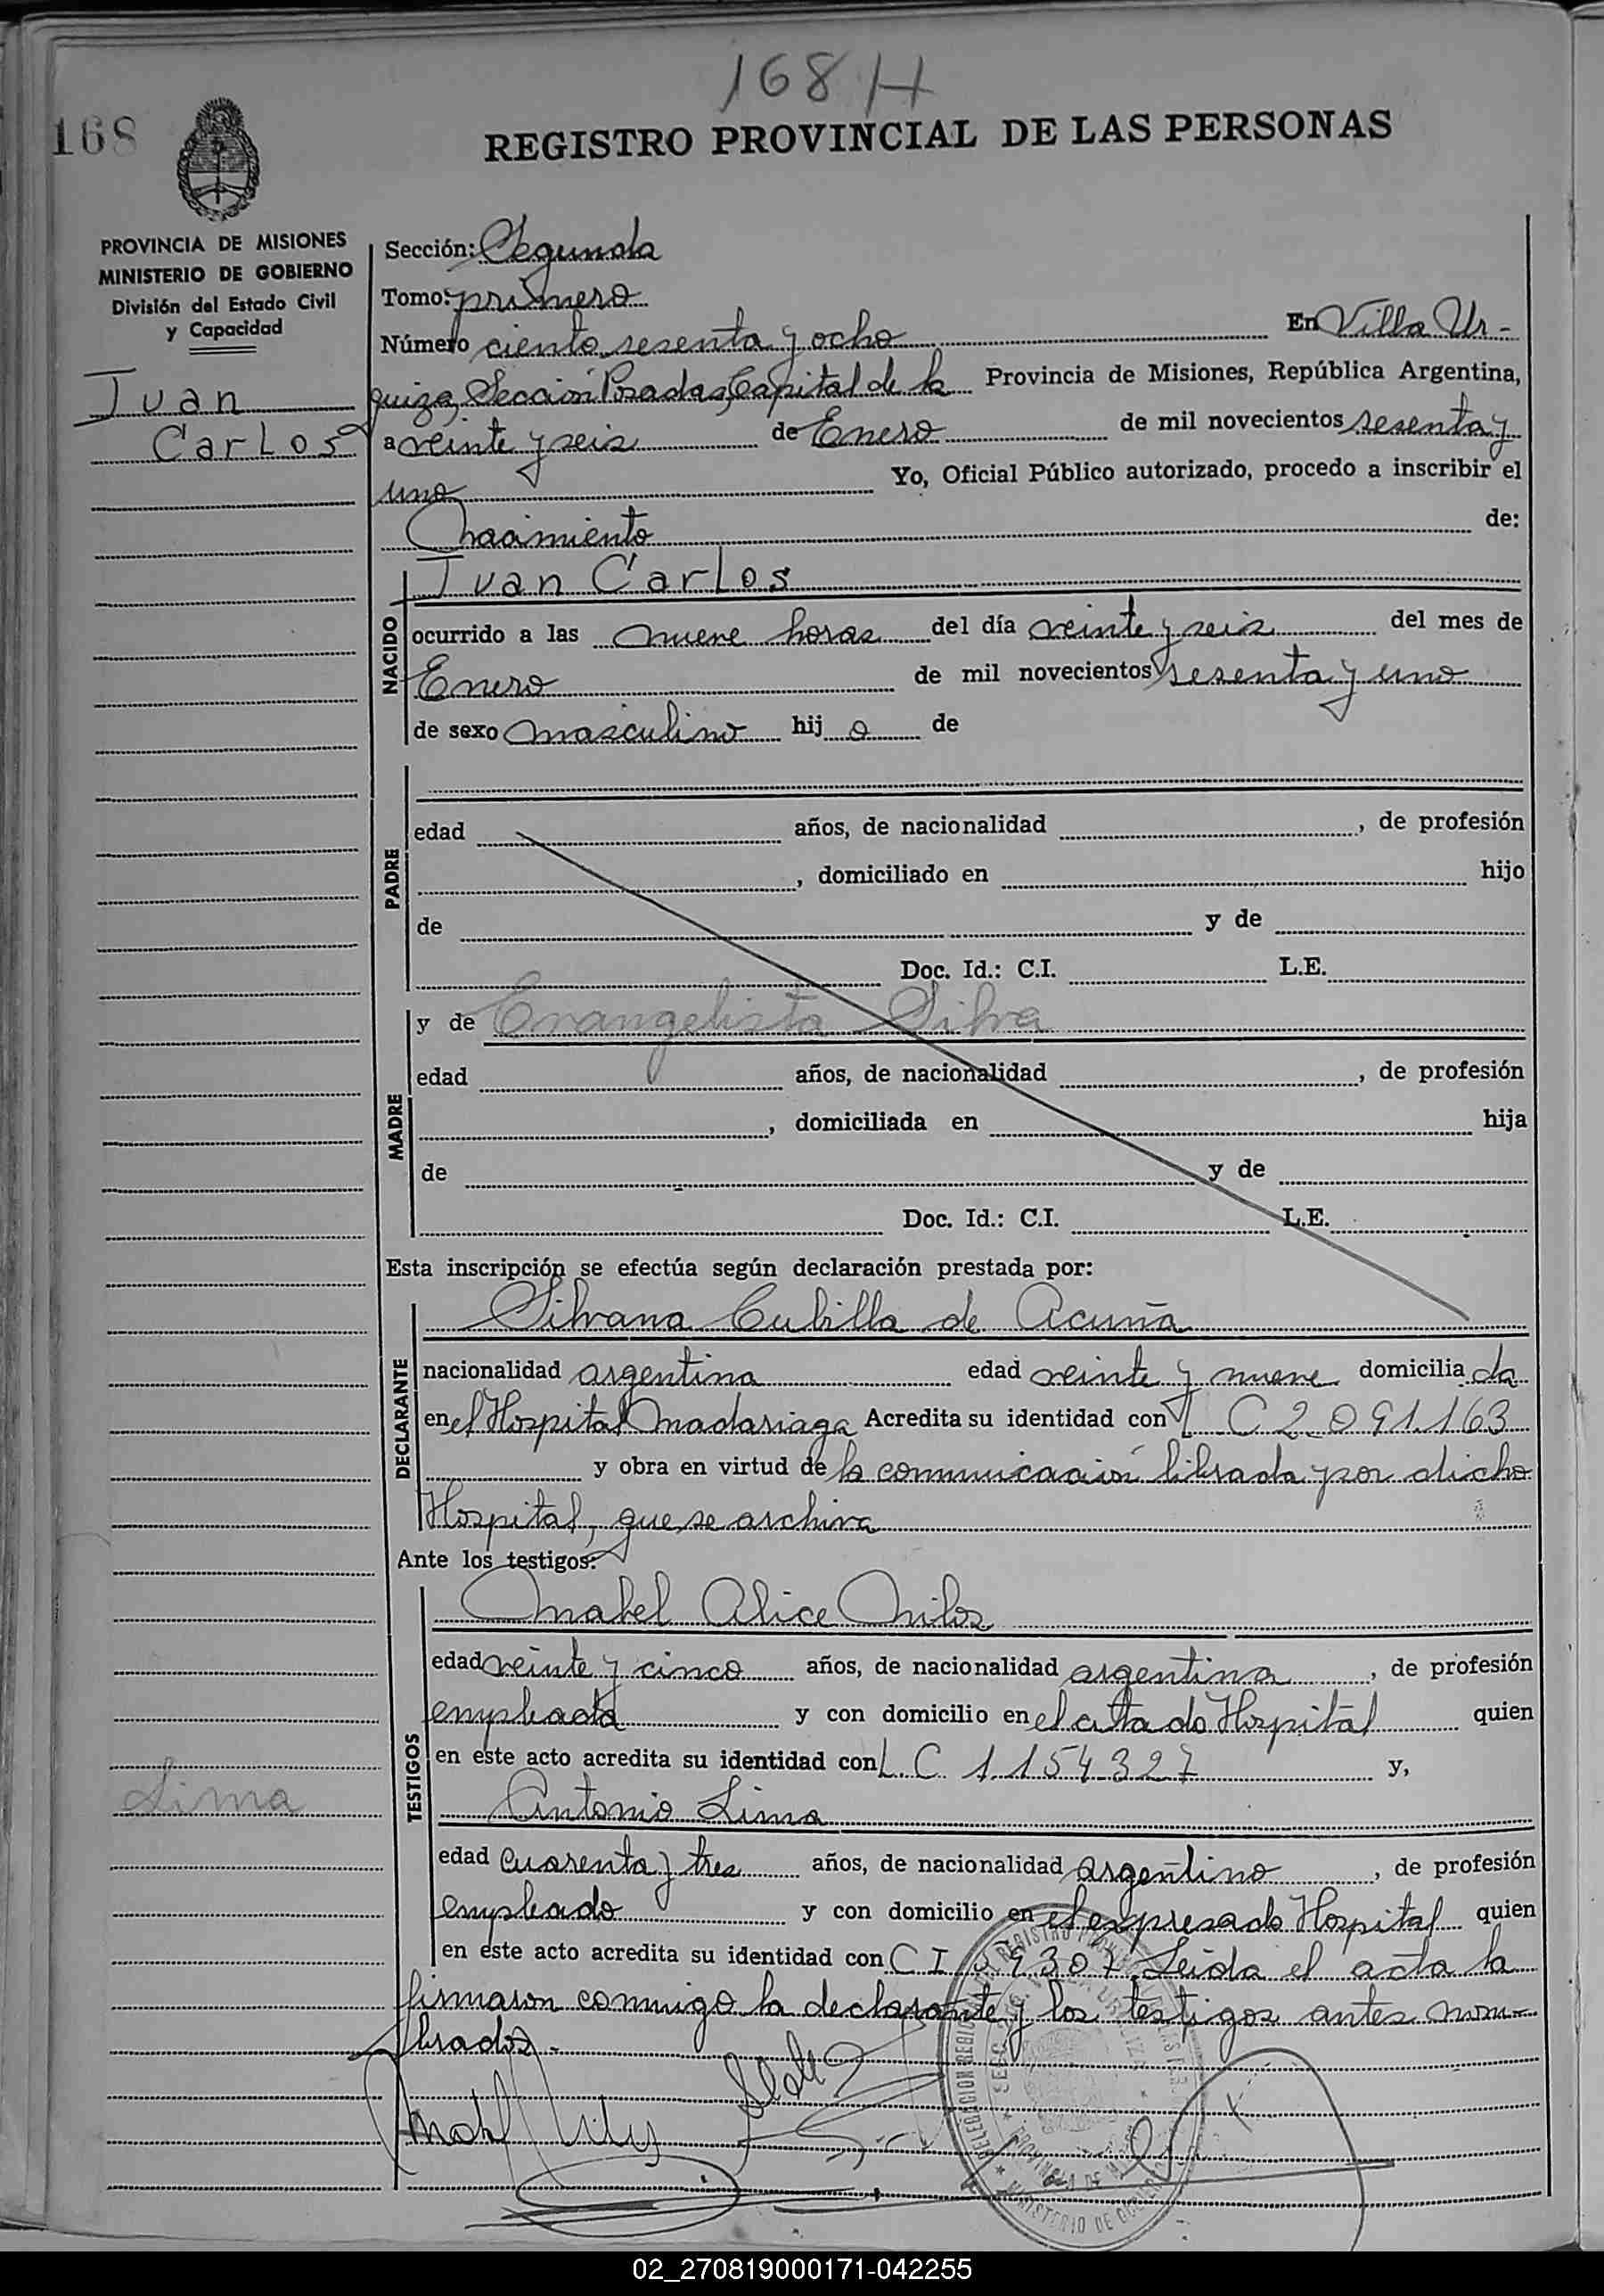 168 H
168
REGISTRO PROVINCIAL DE LAS PERSONAS
PROVINCIA DE MISIONES
MINISTERIO DE GOBIERNO
División del Estado Civil
y Capacidad
Juan
Carlos
Sección: Segunda
Tomo: primero
Número ciento sesenta y ocho En Villa Ur-
quiza, Sección Posadas, Capital de la Provincia de Misiones, República Argentina,
a veinte y seis de Enero de mil novecientos sesenta y
uno Yo, Oficial Público autorizado, procedo a inscribir el
Nacimiento de:
NACIDO
Juan Carlos
ocurrido a las nueve horas del día veinte y seis del mes de
Enero de mil novecientos sesenta y uno
de sexo masculino hij o de
PADRE
edad años, de nacionalidad , de profesión
, domiciliado en hijo
de y de
Doc. Id.: C.I. L.E.
MADRE
y de Evangelista Silva
edad años, de nacionalidad , de profesión
, domiciliada en hija
de y de
Doc. Id.: C.I. L.E.
Esta inscripción se efectúa según declaración prestada por:
DECLARANTE
Silvana Cubilla de Acuña
nacionalidad argentina edad veinte y nueve domicilia da
en el Hospital Madariaga Acredita su identidad con L C 2.091.163
y obra en virtud de la comunicación librada por dicho
Hospital, que se archiva
Ante los testigos:
TESTIGOS
Mabel Alice Milos
edad veinte y cinco años, de nacionalidad argentina , de profesión
empleada y con domicilio en el citado Hospital quien
en este acto acredita su identidad con L. C 1.154.327 y,
Lima
Antonio Lima
edad cuarenta y tres años, de nacionalidad argentino , de profesión
empleado y con domicilio en el expresado Hospital quien
en este acto acredita su identidad con C I 59307. Leida el acta la
firmaron conmigo la declarante y los testigos antes nom-
brados.-
02_270819000171-042255